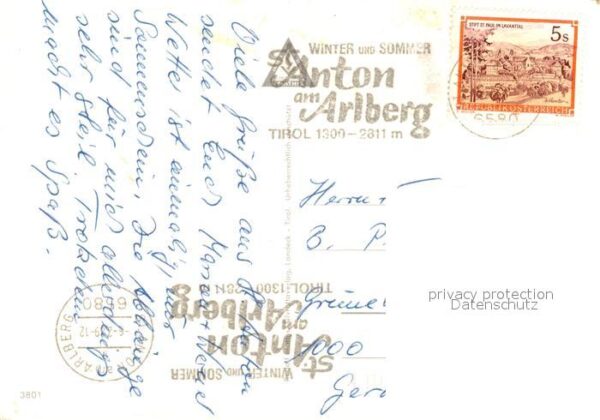 Viele Grüße aus St. Anton
sendet Euch
Wetter ist einmalig, nur
Sonnenschein. Die Abhänge
sind für mich allerdings
sehr steil. Trotzdem
macht es Spaß.
WINTER UND SOMMER
St. Anton
am
Arlberg
TIROL 1300-2811 m
STIFT ST. PAUL IM LAVANTTAL
5s
REPUBLIK ÖSTERREICH
6580
Herrn
B. P.
1000
privacy protection
Datenschutz
WINTER UND SOMMER
St. Anton
am
Arlberg
TIROL 1300-2811
6580
ARLBERG
3801